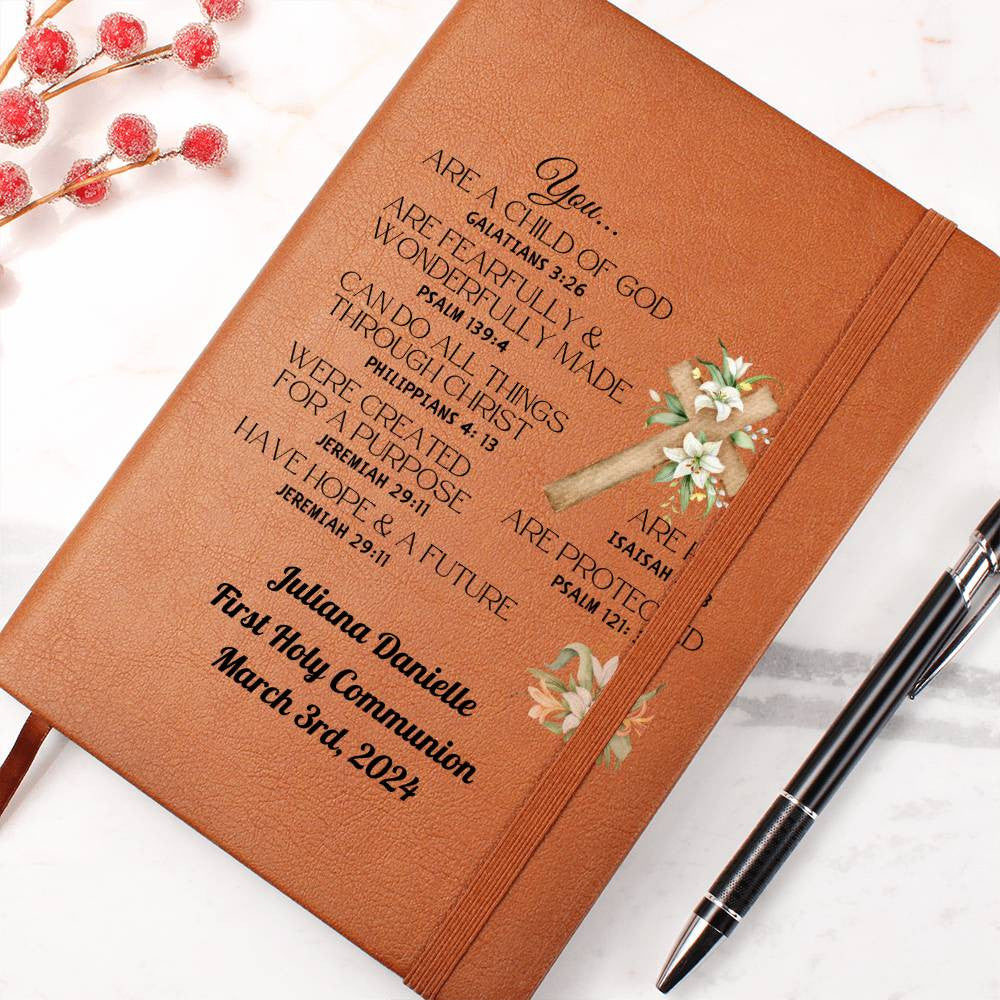 You...
ARE A CHILD OF GOD
GALATIANS 3:26
ARE FEARFULLY &
WONDERFULLY MADE
PSALM 139:4
CAN DO ALL THINGS
THROUGH CHRIST
PHILIPPIANS 4: 13
WERE CREATED
FOR A PURPOSE
JEREMIAH 29:11
HAVE HOPE & A FUTURE
JEREMIAH 29:11
ARE
ISAISAH
ARE
PSALM 121:
Juliana Danielle
First Holy Communion
March 3rd, 2024